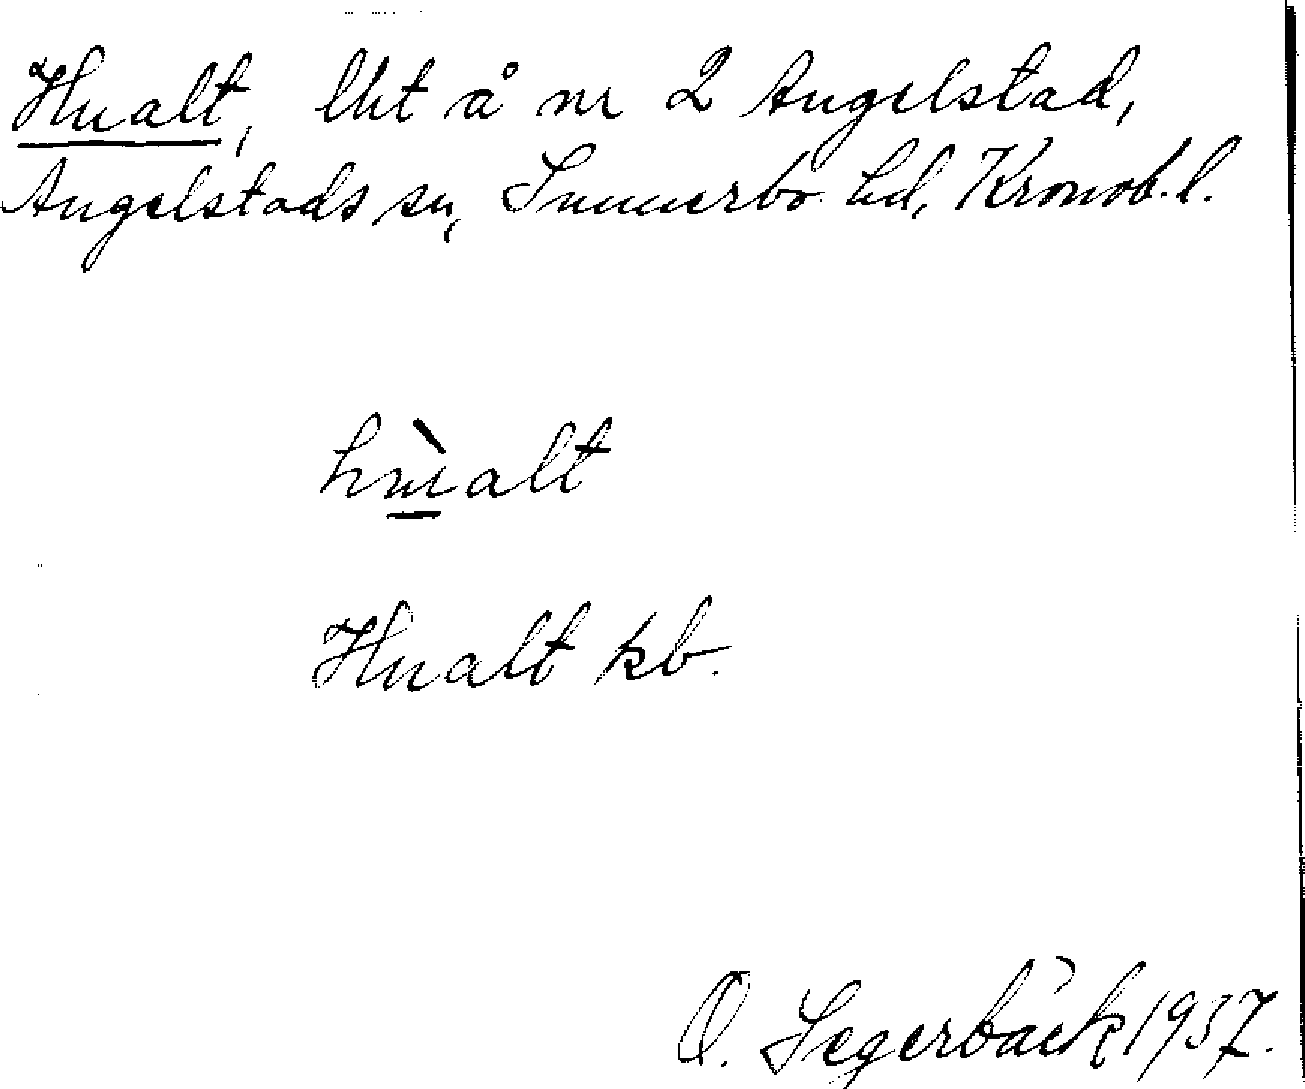 Hualt, lht å nr 2 Angelstad,
Angelstads sn, Sunnerbo hd, Kronob. l.
hùalt
Hualt kb.
O. Segerbäck 1937.